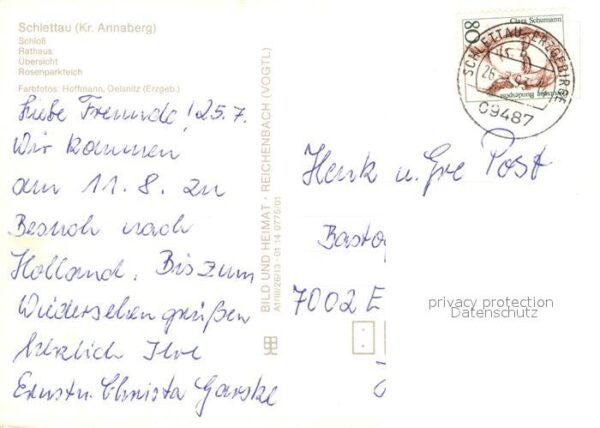 Schlettau (Kr. Annaberg)
Schloß
Rathaus
Übersicht
Rosenparkteich
Farbfotos: Hoffmann, Oelsnitz (Erzgeb.)
Liebe Freunde! 25.7.
Wir kommen
am 11.8. zu
Besuch nach
Holland. Bis zum
Wiedersehen grüßen
herzlich Ihre
Ernst u. Christa Garske
BILD UND HEIMAT · REICHENBACH (VOGTL)
A1/III/26/13 · 01 14 0775/01
80
Clara Schumann
Deutsche Bundespost
SCHLETTAU, ERZGEBIRGE
09487
Henk u. Gre Post
Bastog
7002 E
privacy protection
Datenschutz